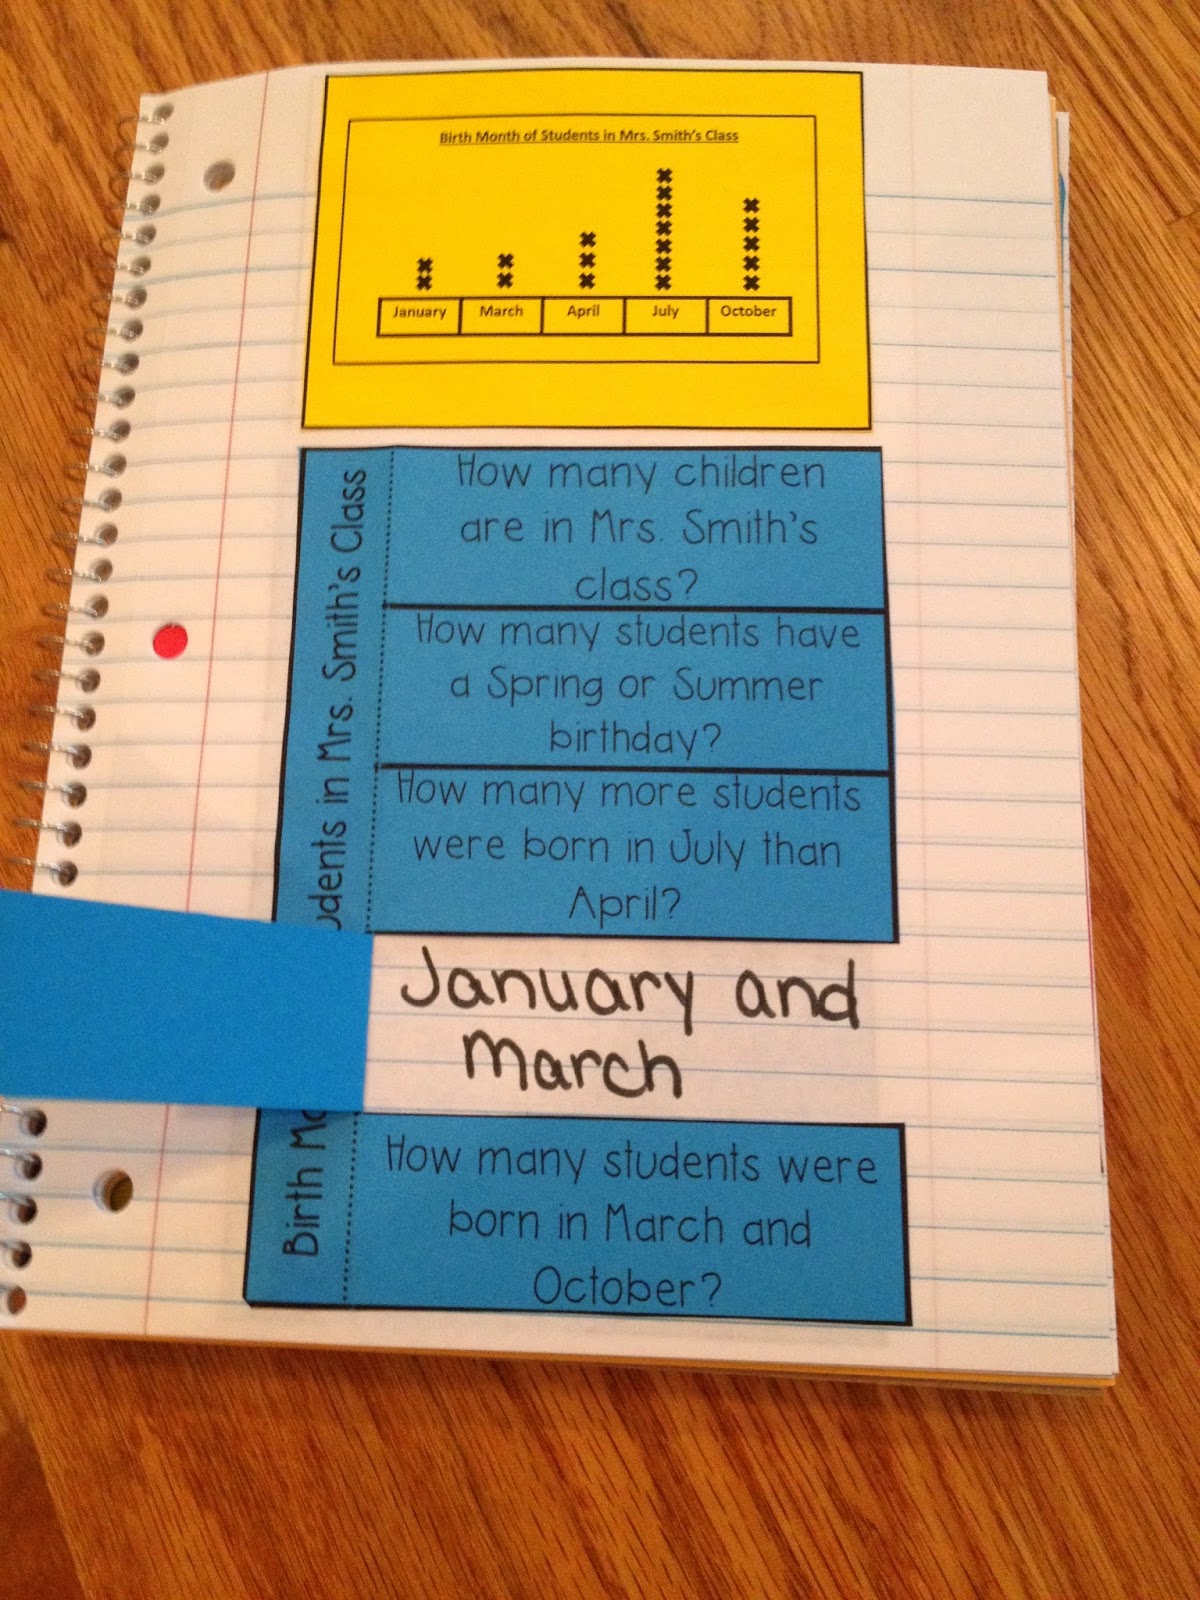 Birth Month of Students in Mrs. Smith's Class
January March April July October
How many children
are in Mrs. Smith's
class?
How many students have
a Spring or Summer
birthday?
How many more students
were born in July than
April?
January and
March
How many students were
born in March and
October?
Birth
in Mrs. Smith's Class